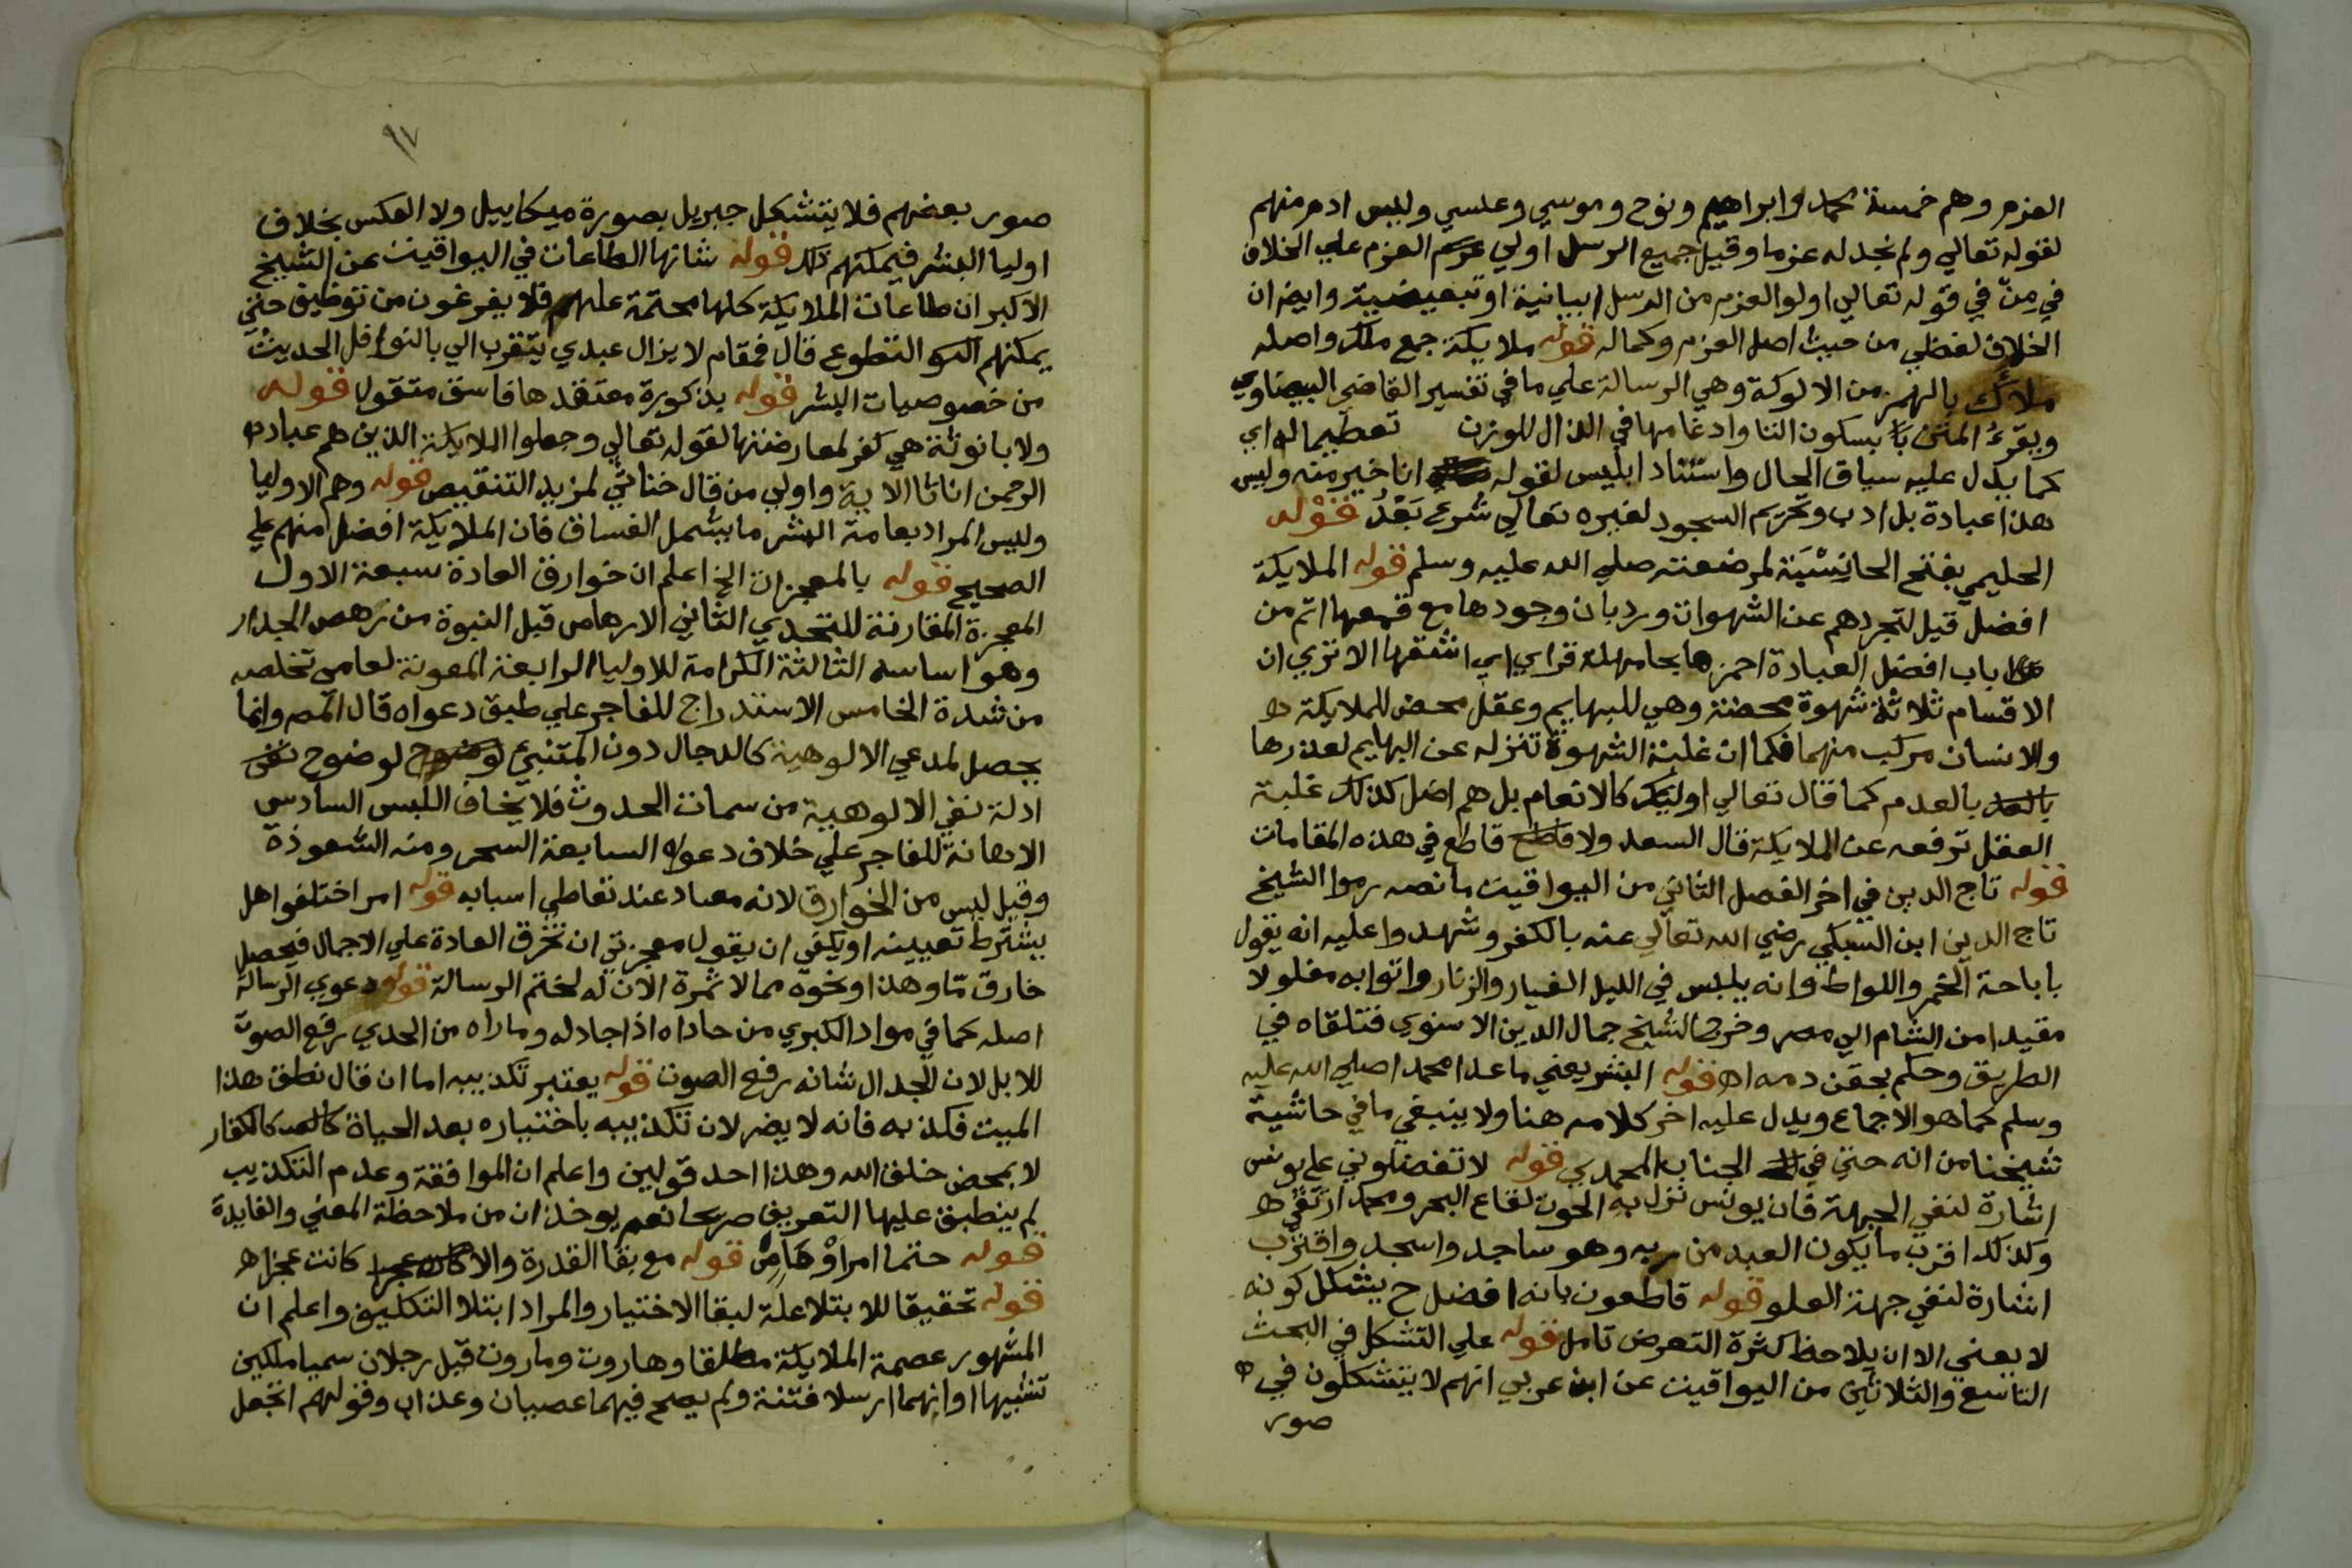 العزم وهم خمسة محمد وابراهيم ونوح وموسي وعيسي وليس ادم منهم
لقوله تعالي ولم نجد له عزما وقيل جميع الرسل اولي العزم علي الخلاف
في مِنْ في قوله تعالي اولو العزم من الرسل ابيانية او تبعيضية وايض ان
الخلاف لفظي من حيث اصل العزم وكماله قوله ملايكة جمع ملك واصله
ملأك بالهمز من الالوكة وهي الرسالة علي ما في تفسير القاضي البيضاوي
ويقرءُ المتن بسكون التا وادغامها في الذال للوزن تعظيما له اي
كما يدل عليه سياق الحال واستناد ابليس لقوله انا خير منه وليس
هذا عبادة بل ادب وتحريم السجود لغيره تعالي شُرع بَعْدُ قوله
الحليمي بفتح الحا نِسْبَة لمرضعته صلي الله عليه وسلم قوله الملايكة
افضل قيل لتجردهم عن الشهوات ورد بان وجودها مع قمعها اتم من
باب افضل العبادة احمزها بحا مهملة فزاي اي اشقها الا تري ان
الاقسام ثلاثة شهوة محضة وهي للبهايم وعقل محض للملايكة
والانسان مركب منهما فكما ان غلبة الشهوة تنزله عن البهايم لعذرها
بالعدم كما قال تعالي اوليك كالانعام بل هم اضل كذلك غلبة
العقل ترفعه عن الملايكة قال السعد ولا قاطع في هذه المقامات
قوله تاج الدين في اخر الفصل الثاني من اليواقيت ما نصه رموا الشيخ
تاج الدين ابن السبكي رضي الله تعالي عنه بالكفر وشهدوا عليه انه يقول
باباحة الخمر واللواط وانه يلبس في الليل الغيار والزنار واتوا به مغلولا
مقيدا من الشام الي مصر وخرج الشيخ جمال الدين الاسنوي فتلقاه في
الطريق وحكم بحقن دمه اه قوله البشر يعني ما عدا محمدا صلي الله عليه
وسلم كما هو الاجماع ويدل عليه اخر كلامه هنا ولا ينبغي ما في حاشية
شيخنا من انه حتي في الجناب المحمدي قوله لا تفضلوني علي يونس
اشارة لنفي الجهة فان يونس نزل به الحوت لقاع البحر ومحمد ارتقي
وكذلك اقرب ما يكون العبد من ربه وهو ساجد واسجد واقترب
اشارة لنفي جهة العلو قوله قاطعون بانه افضل ح يشكل كونه
لا يعني الا ان يلاحظ كثرة التعرض تامل قوله علي التشكل في البحث
التاسع والثلاثين من اليواقيت عن ابن عربي انهم لا يتشكلون في
صور
٩٧
صور بعضهم فلا يتشكل جبريل بصورة ميكاييل ولا العكس بخلاف
اوليا البشر فيمكنهم ذلك قوله شانها الطاعات في اليواقيت عن الشيخ
الاكبر ان طاعات الملايكة كلها محتمة عليهم فلا يفرغون من توظيف حتي
يمكنهم التطوع قال فمقام لا يزال عبدي يتقرب الي بالنوافل الحديث
من خصوصيات البشر قوله بذكورة معتقدها فاسق متقول قوله
ولا بانوثة هي كفر لمعارضتها لقوله تعالي وجعلوا الملايكة الذين هم عباد
الرحمن اناثا الاية واولي من قال خناثي لمزيد التنقيص قوله وهم الاوليا
وليس المراد بعامة البشر ما يشمل الفساق فان الملايكة افضل منهم علي
الصحيح قوله بالمعجزات الخ اعلم ان خوارق العادة سبعة الاول
المعجزة المقارنة للتحدي الثاني الارهاص قبل النبوة من رهص الجدار
وهو اساسه الثالثة الكرامة للاوليا الرابعة المعونة لعامي تخلصه
من شدة الخامس الاستدراج للفاجر علي طبق دعواه قال المص وانما
يحصل لمدعي الالوهية كالدجال دون المتنبئ لوضوح لوضوح
ادلة نفي الالوهية من سمات الحدوث فلا يخاف اللبس السادس
الاهانة للفاجر علي خلاف دعواه السابعة السحر ومنه الشعوذة
وقيل ليس من الخوارق لانه معتاد عند تعاطي اسبابه قوله امر اختلفوا هل
يشترط تعيينه او يكفي ان يقول معجزتي ان تخرق العادة علي الاجمال فيحصل
خارق مّا وهذا ونحوه مما لا ثمرة الان له لختم الرسالة قوله دعوي الرسالة
اصله كما في مواد الكبري من حاداه اذا جادله وماراه من الحدي رفع الصوت
للابل لان الجدال شانه رفع الصوت قوله يعتبر تكذيبه اما ان قال نطق هذا
الميت فكذبه فانه لا يضر لان تكذيبه باختياره بعد الحياة كالكفار
لا بمحض خلق الله وهذا احد قولين واعلم ان الموافقة وعدم التكذيب
لم ينطبق عليها التعريف صريحا نعم يوخذان من ملاحظة المعني والفايدة
قوله حتما امرا قوله مع بقا القدرة والا كانت عجزا
قوله تحقيقا للابتلا علة لبقا الاختيار والمراد ابتلا التكليف واعلم ان
المشهور عصمة الملايكة مطلقا وهاروت وماروت قيل رجلان سميا ملكين
تشبيها او انهما ارسلا فتنة ولم يصح فيهما عصيان وعذاب وقولهم اتجعل